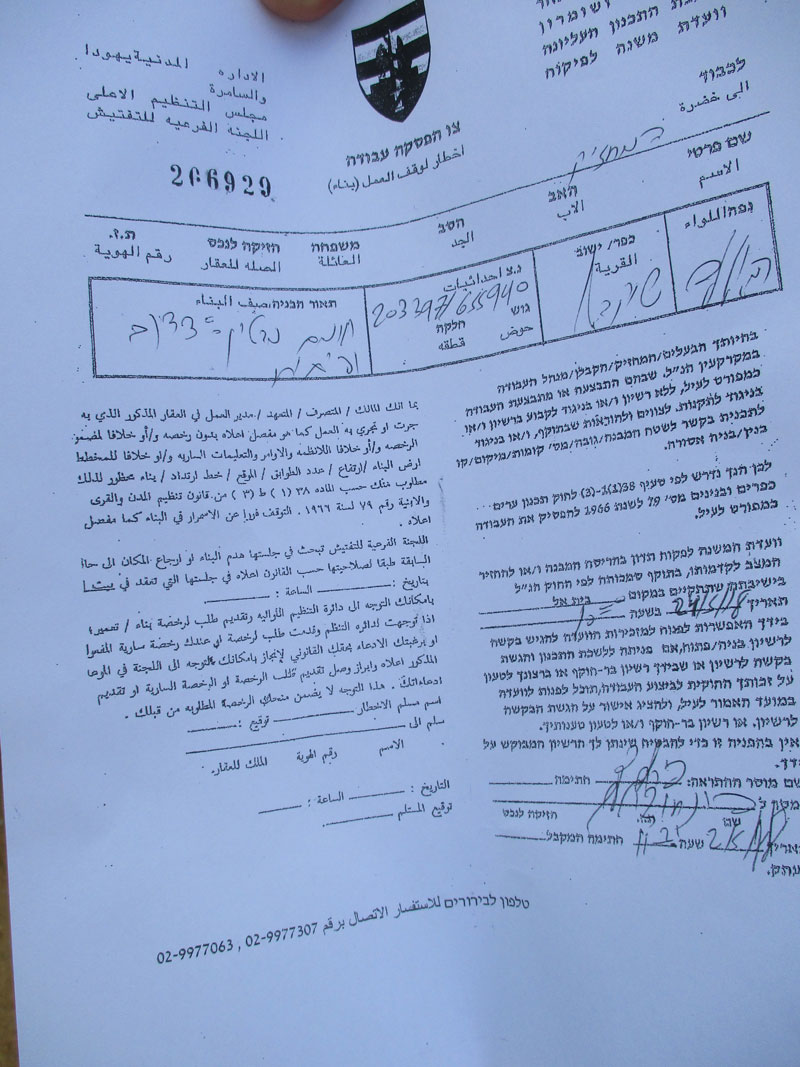 ושומרון
ת התכנון העליונה
וועדת משנה לפיקוח
לכבוד
الى حضرة
الاداره المدنية يهودا
والسامرة
مجلس التنظيم الاعلى
اللجنة الفرعيه للتفتيش
206929
צו הפסקת עבודה
اخطار لوقف العمل (بناء)
המחזיק
שם פרטי האב הסב משפחה חזיקה לנכס ת.ז.
الاسم الاب الجد العائلة الصله للعقار رقم الهوية
נפה/اللواء
כפר/ ישוב
القرية
נ.צ احداثيات
203397/655940
גוש חלקה
حوض قطعه
תאור הבניה/صيف البناء
בחיותך הבעלים/המחזיק/הקבלן/מנהל העבודה
במקרקעין הנ"ל. שבהם התבצעה או מתבצעת העבודה
כמפורט לעיל, ללא רשיון ו/או בניגוד לקבוע ברשיון ו/או
בניגוד לתקנות. לצווים ולהוראות שבתוקף, ו/או בניגוד
לתכנית בקשר לשטח המבנה/גובה/מס' קומות/מיקום/קו
בנין/בניה אסורה.
לכן הנך נדרש לפי סעיף 38(1)-(3) לחוק תכנון ערים
כפרים ובנינים מס' 79 לשנת 1966 להפסיק את העבודה
כמפורט לעיל.
וועדת המשנה לפקוח תדון בהריסת המבנה ו/או להחזיר
המצב לקדמותו, בתוקף סמכותה לפי החוק הנ"ל
בישיבתה שתתקיים במקום בית אל
תאריך 24/5/18 בשעה
בידך האפשרות לפנות למזכירות הוועדה להגיש בקשה
לרשיון בניה/פתוח,אם פניתה ללשכת התכנון והגשת
בקשה לרשיון או שבידך רשיון בר-תוקף או ברצונך לטעון
על זכותך החוקית לביצוע העבודה,תוכל לפנות לוועדה
במועד האמור לעיל, ולהציג אישור על הגשת הבקשה
לרשיון. או רשיון בר-תוקף ו/או לטעון טענותיך.
אין בהפניה זו כדי להבטיח שינתן לך הרשיון המבוקש על
ידך.
שם מוסר ההתראה: חתימה
שם ת.ז. חזיקה לנכס
שעה חתימה המקבל
بما انك المالك / المتصرف / المتعهد / مدير العمل في العقار المذكور الذي به
جرت او تجري به العمل كما هو مفصل اعلاه بدون رخصه و/أو خلافا لمضمو
الرخصه و/أو خلافا للانظمه والاوامر والتعليمات الساريه و/او خلافا للمخطط
ارض البناء /ارتفاع / عدد الطوابق / الموقع / خط ارتداد / بناء محظور لذلك
مطلوب منك حسب الماده ٣٨ (١) ط (٣) من قانون تنظيم المدن والقرى
والابنية رقم ٧٩ لسنة ١٩٦٦ . التوقف فورا عن الاسمرار في البناء كما مفصل
اعلاه .
اللجنة الفرعية للتفتيش تبحث في جلستها هدم البناء او ارجاع المكان الى حا
السابقة طبقا لصلاحيتها حسب القانون اعلاه في جلستها التي تعقد في بيت ا
بتاريخ: الساعة :
بامكانك التوجه الى دائرة التنظيم اللوائيه وتقديم طلب لرخصة بناء / تعمير؛
اذا توجهت لدائره التنظم وقدمت طلب لرخصة او عندك رخصة سارية المفعوا
او برغبتك الادعاء بحقك القانوني لإنجاز بامكانك التوجه الى اللجنة في الموعا
المذكور اعلاه وابراز وصل تقديم طلب الرخصة او الرخصة السارية او تقديم
ادعاءاتك . هذا التوجه لا يضمن منحك الرخصة المطلوبه من قبلك .
اسم مسلم الاخطار توقيع :
سلم الى
الاسم رقم الهوية الملك للعقار.
التاريخ : الساعة :
توقيع المستلم
טלפון לבירורים للاستفسار الاتصال برقم 02-9977307 , 02-9977063